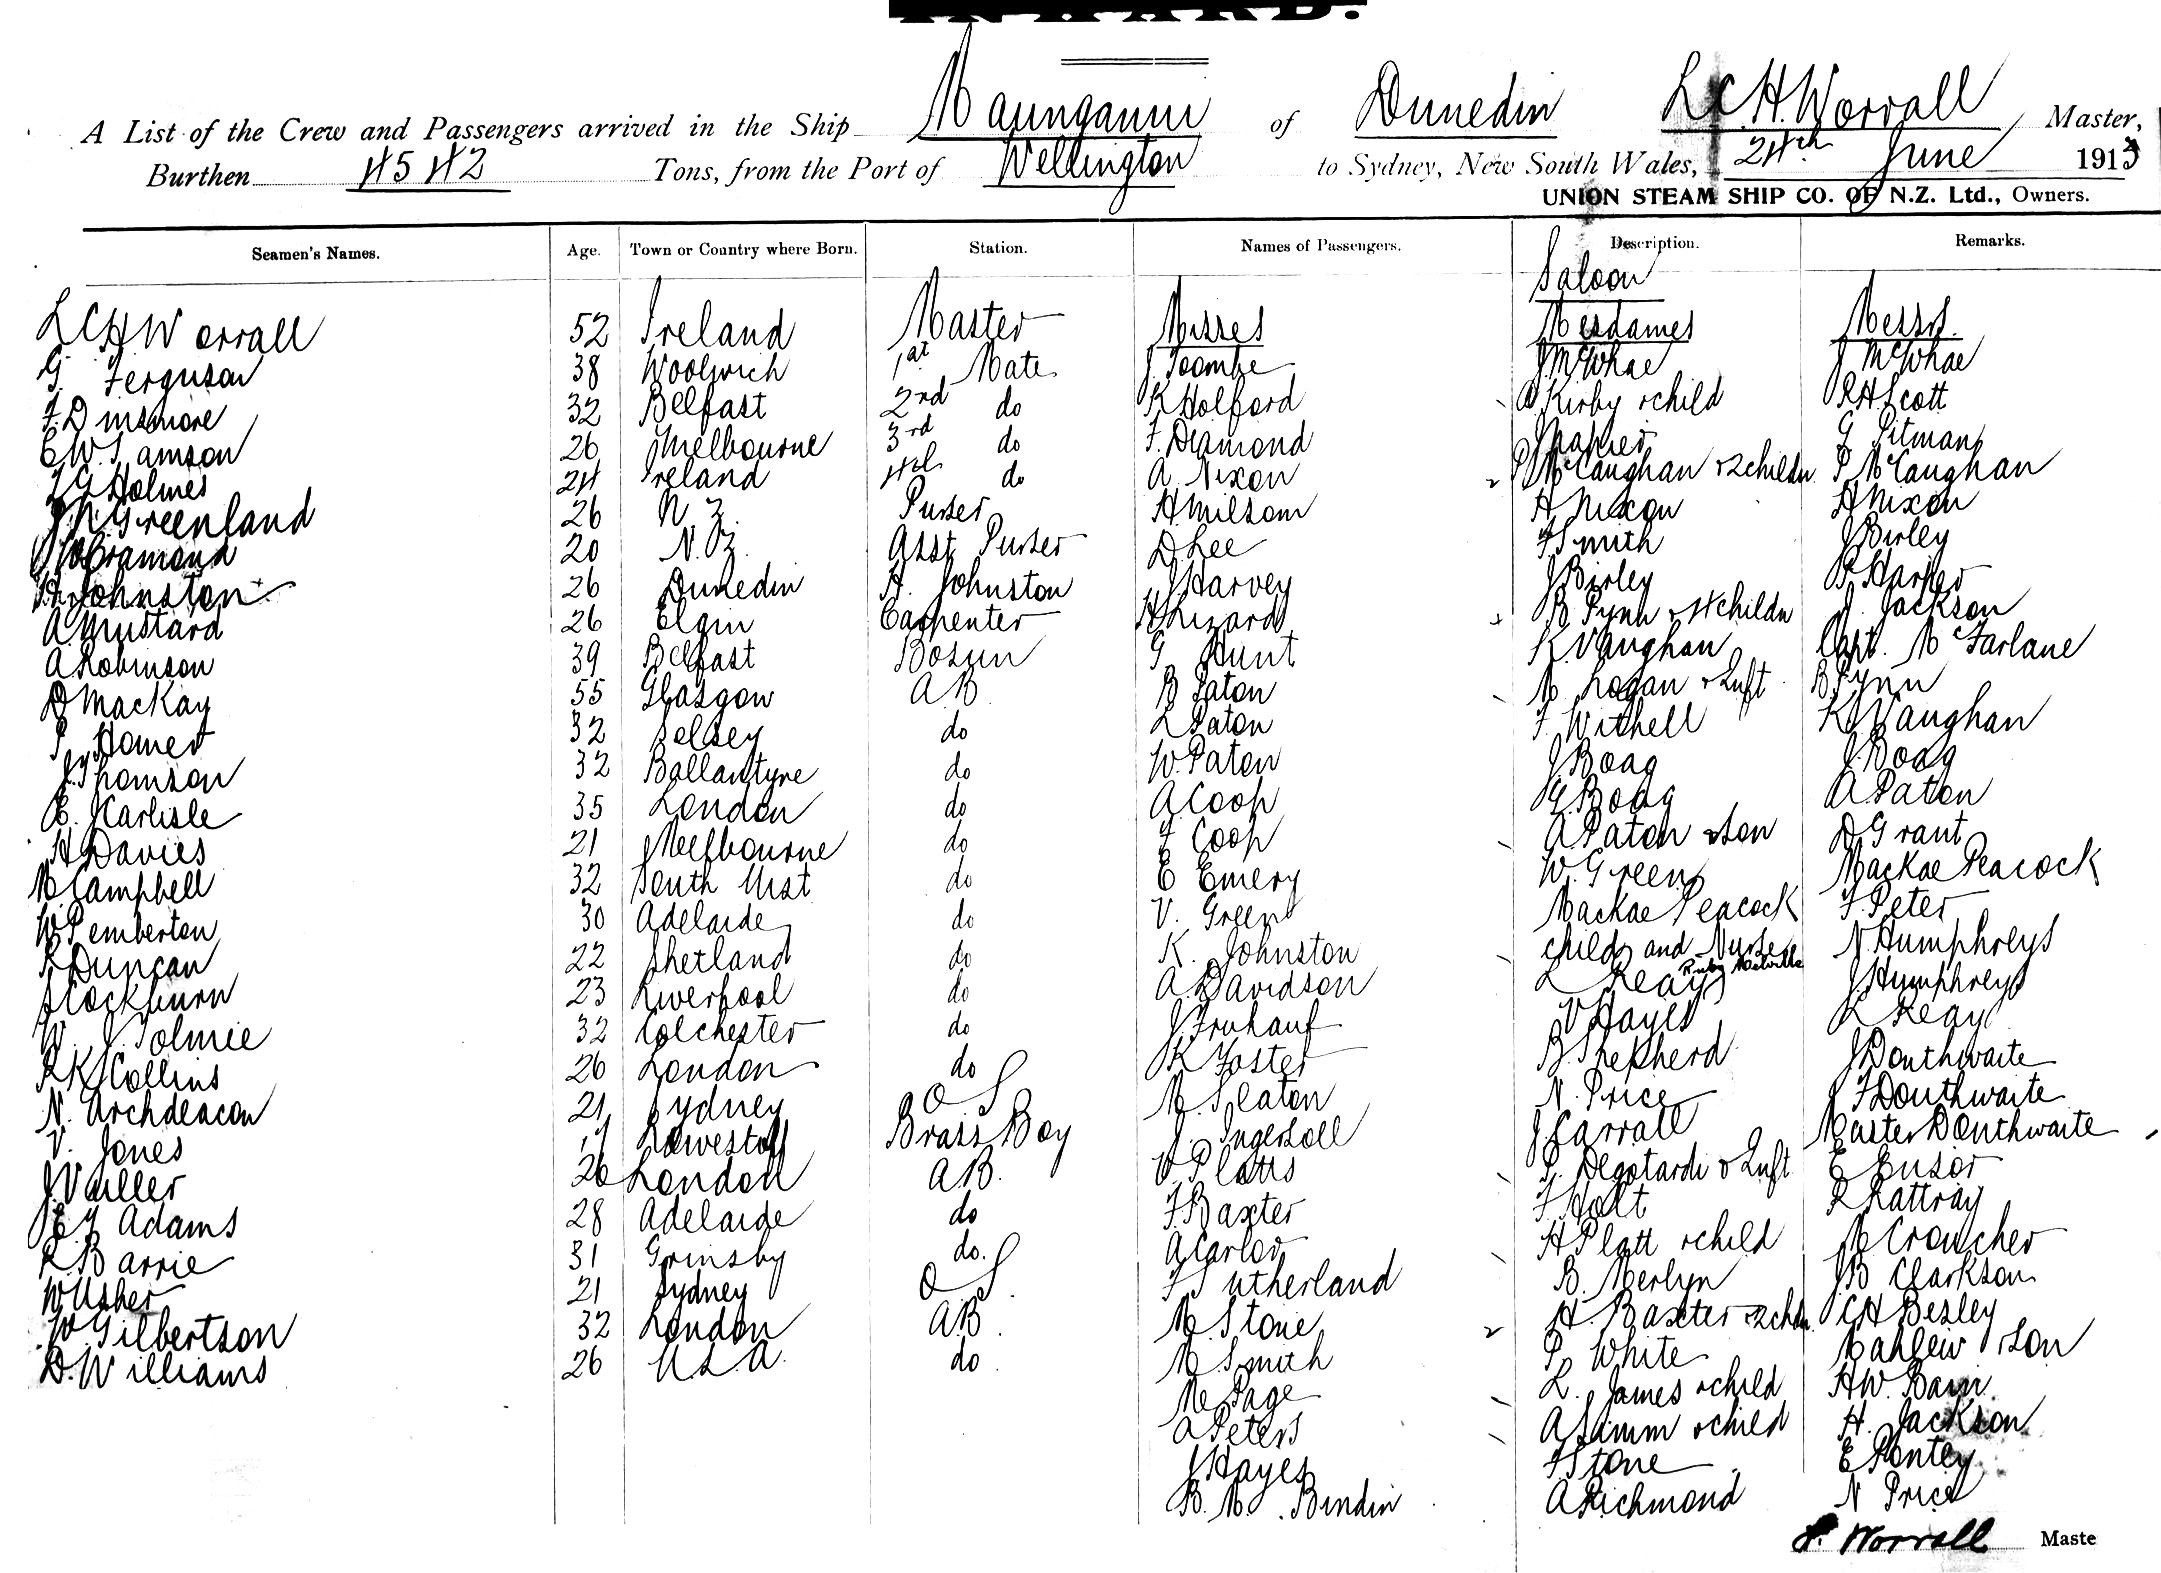 INWARD.
A List of the Crew and Passengers arrived in the Ship Maunganui of Dunedin L C H. Worrall Master,
Burthen 4542 Tons, from the Port of Wellington to Sydney, New South Wales, 24th June 1913
UNION STEAM SHIP CO. OF N.Z. Ltd., Owners.
Seamen's Names. Age. Town or Country where Born. Station. Names of Passengers. Description. Remarks.
Saloon
L C H Worrall 52 Ireland Master Misses Mesdames Messrs.
G. Ferguson 38 Woolwich 1st Mate J. Toombe J McWhae J McWhae
F. Dinsmore 32 Belfast 2nd do K Holford Kirby & child R H Scott
C W. Samson 26 Melbourne 3rd do F. Diamond Napier G Pitman
Holmes 24 Ireland 4th do A. Nixon P McCaughan & 2 childn P McCaughan
Greenland 26 N Z. Purser H Milsom H Nixon H Nixon
Cramond 20 N. Z. Asst Purser D Lee F Smith J Birley
H. Johnston 26 Dunedin H. Johnston J Harvey J Birley B Harper
A Mustard 26 Elgin Carpenter H Lizard B Pynn & 4 childn J. Jackson
A Robinson 39 Belfast Bosun G Hunt K Vaughan Capt. McFarlane
D MacKay 55 Glasgow A B B Paton M. Logan & Inft B Pynn
P. Homer 32 Selsey do L Paton F Withell K Vaughan
J. Thomson 32 Ballantyre do W. Paton J Boag J. Boag
E. Karlisle 35 London do A Coop G. Boag A Paton
H Davies 21 Melbourne do F Coop A Paton & Son D Grant
M. Campbell 32 South Uist do E Emery W. Green MacKae Peacock
W Pemberton 30 Adelaide do V. Green MacKae Peacock F. Peter
R Duncan 22 Shetland do K. Johnston child and Nurse N Humphreys
Ruby Melville
Cockburn 23 Liverpool do A. Davidson L Reay J Humphreys
W. J. Tolmie 32 Colchester do J. Fruhauf V Hayes L Reay
R K Collins 26 London do K Foster B Shepherd J Douthwaite
N. Archdeacon 21 Sydney O S M. Slaton N. Price F Douthwaite
V. Jones 17 Lowestoff Brass Boy J Ingersoll J Carrall Master Douthwaite
J Valler 26 London A B. V Platts G. Degotardi & Inft E Ensor
E J Adams 28 Adelaide do F Baxter F Holt R Rattray
R Barrie 31 Grimsby do. A Carlov H Platt & child M Croucher
W Usher 21 Sydney O S. F Sutherland B. Merlyn J B Clarkson
W Gilbertson 32 London A B. M. Stone H. Baxter & 2 chdn C H Besley
D. Williams 26 U.S.A. do. M Smith P. White & Son
M. Page L. James & child H W. Bain
A Peters A Simm & child H. Jackson
J Hayes F Stone E Pontey
B. M. Bindin A Richmond N Price
Worrall Maste